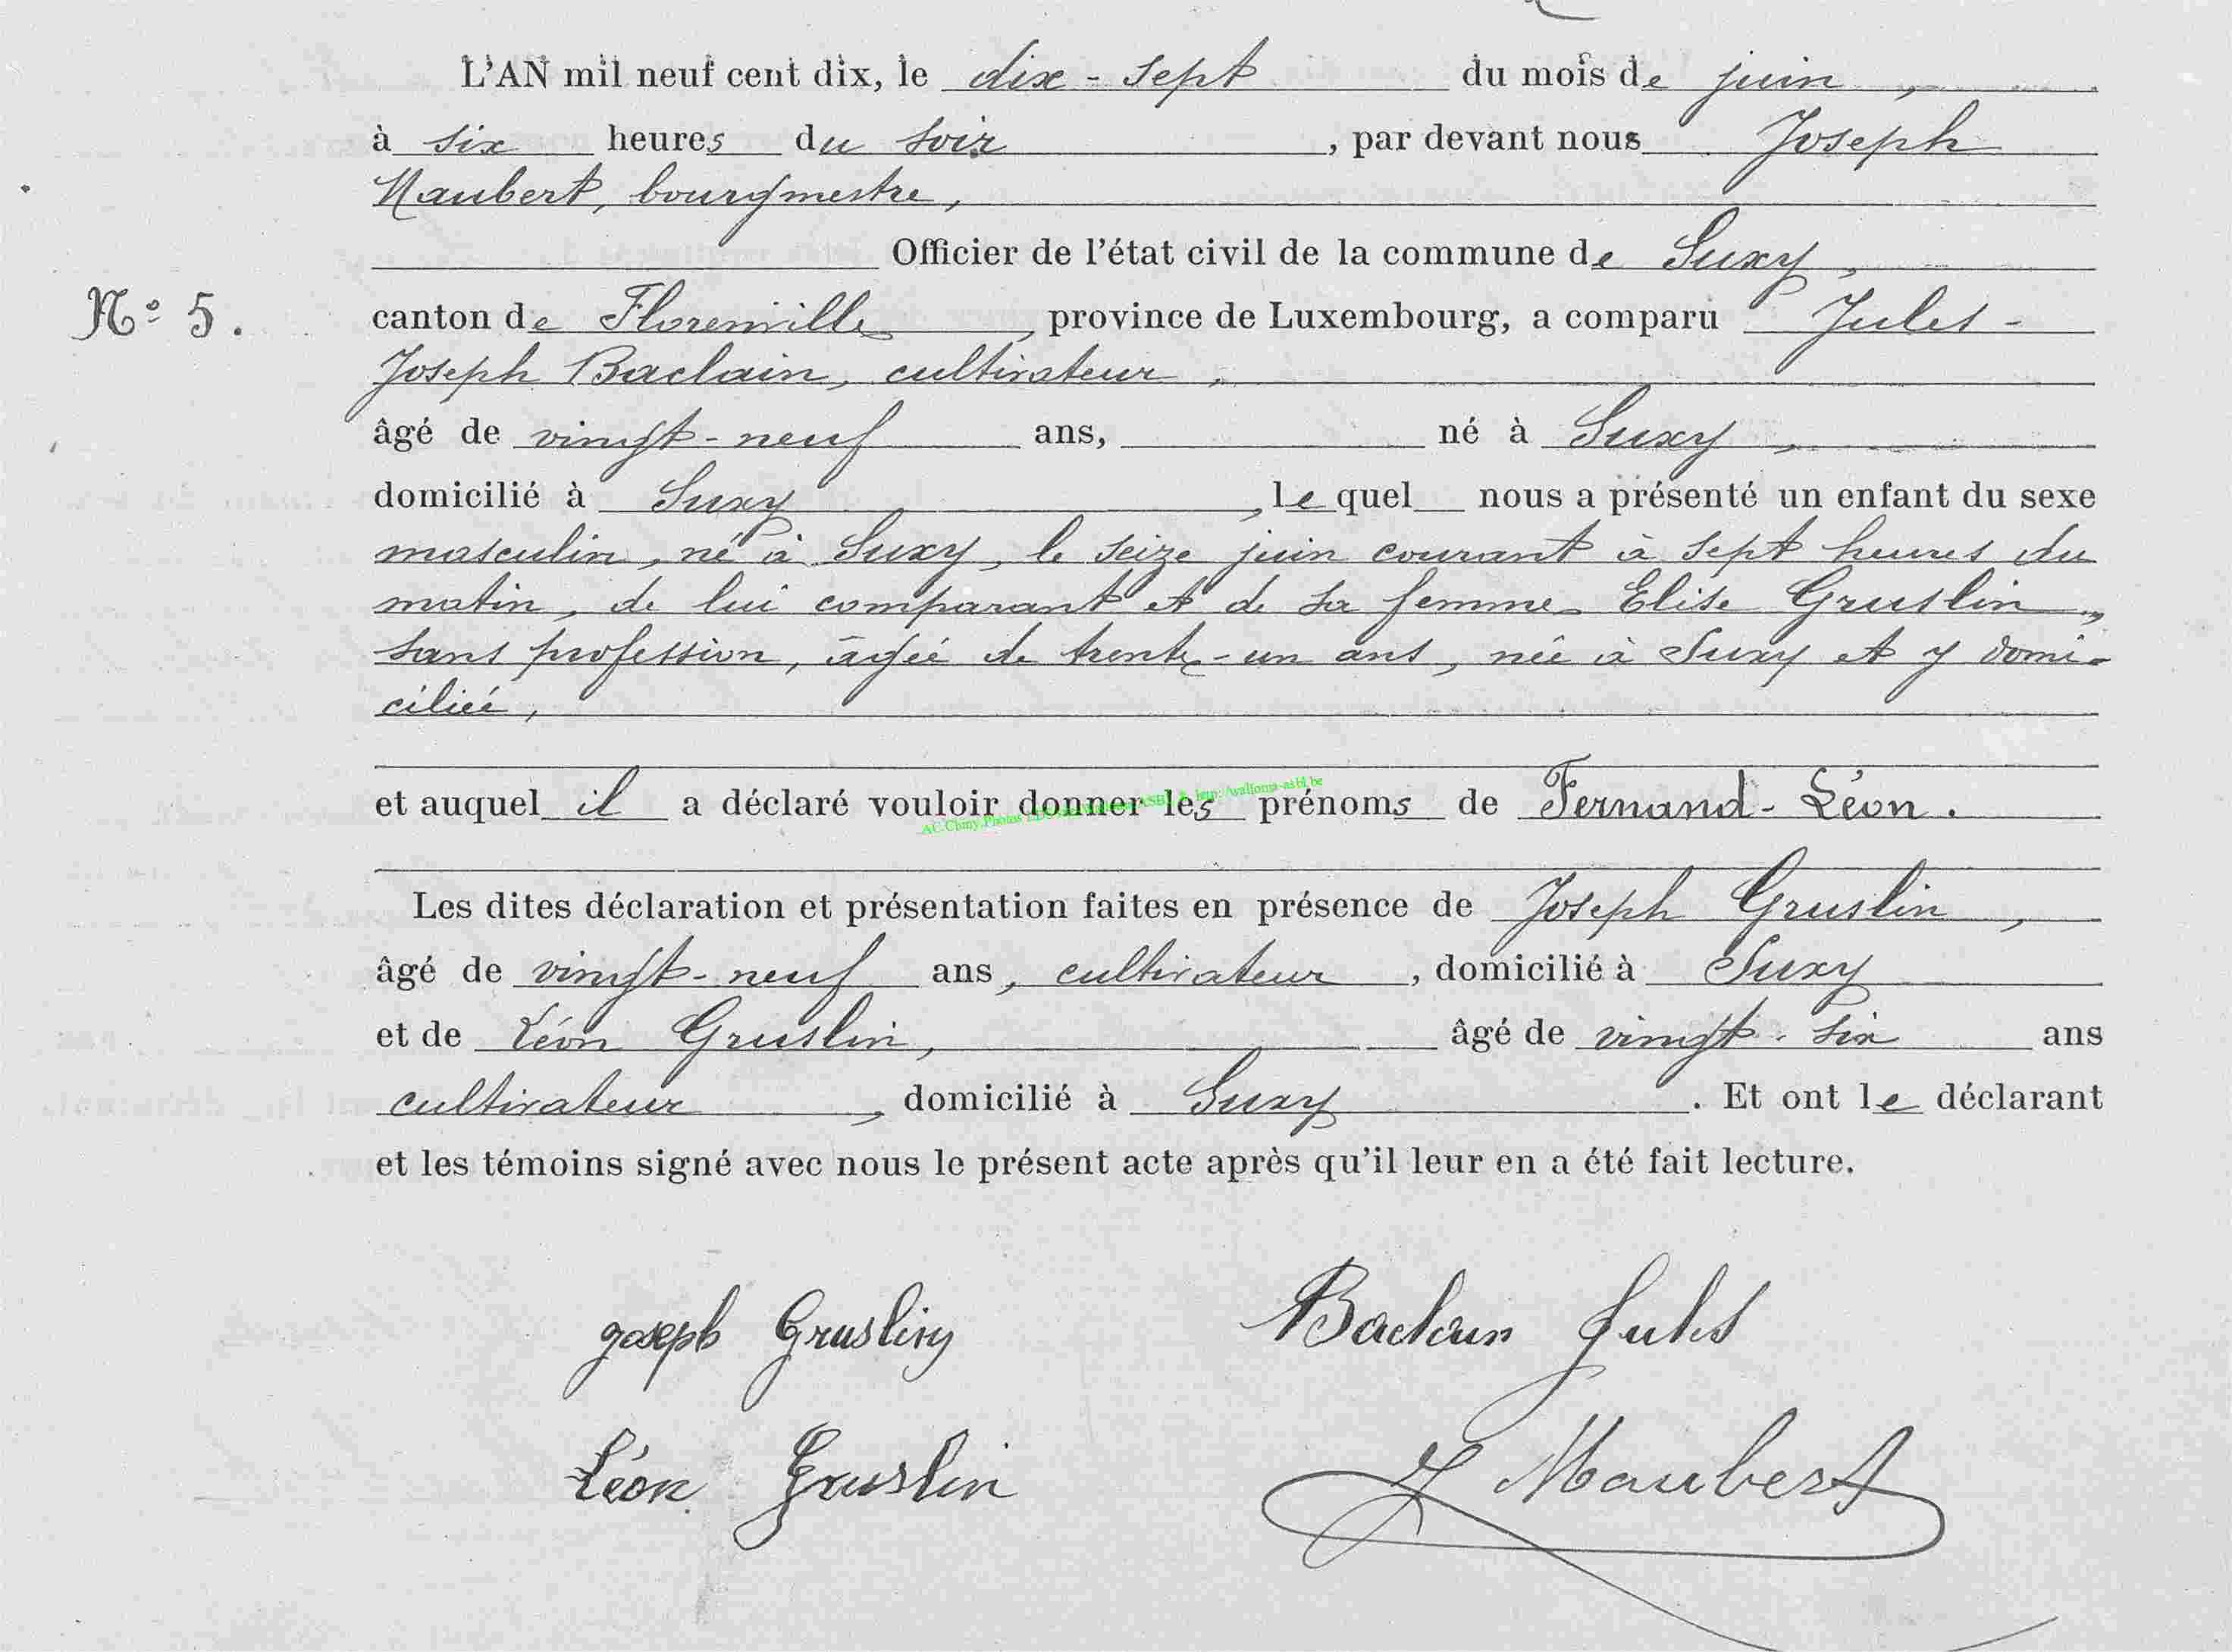 L'AN mil neuf cent dix, le dix-sept du mois de juin,
à six heures du soir, par devant nous Joseph
Maubert, bourgmestre,
Officier de l'état civil de la commune de Suxy,
N° 5.
canton de Florenville, province de Luxembourg, a comparu Jules-
Joseph Baclain, cultivateur,
âgé de vingt-neuf ans, né à Suxy,
domicilié à Suxy, le quel nous a présenté un enfant du sexe
masculin, né à Suxy, le seize juin courant à sept heures du
matin, de lui comparant et de sa femme Elise Gruslin,
sans profession, âgée de trente-un ans, née à Suxy et y domi-
ciliée,
et auquel il a déclaré vouloir donner les prénoms de Fernand-Léon.
Les dites déclaration et présentation faites en présence de Joseph Gruslin,
âgé de vingt-neuf ans, cultivateur, domicilié à Suxy
et de Léon Gruslin, âgé de vingt-six ans
cultivateur, domicilié à Suxy. Et ont le déclarant
et les témoins signé avec nous le présent acte après qu'il leur en a été fait lecture.
joseph Gruslin Baclain Jules
Léon Gruslin J Maubert